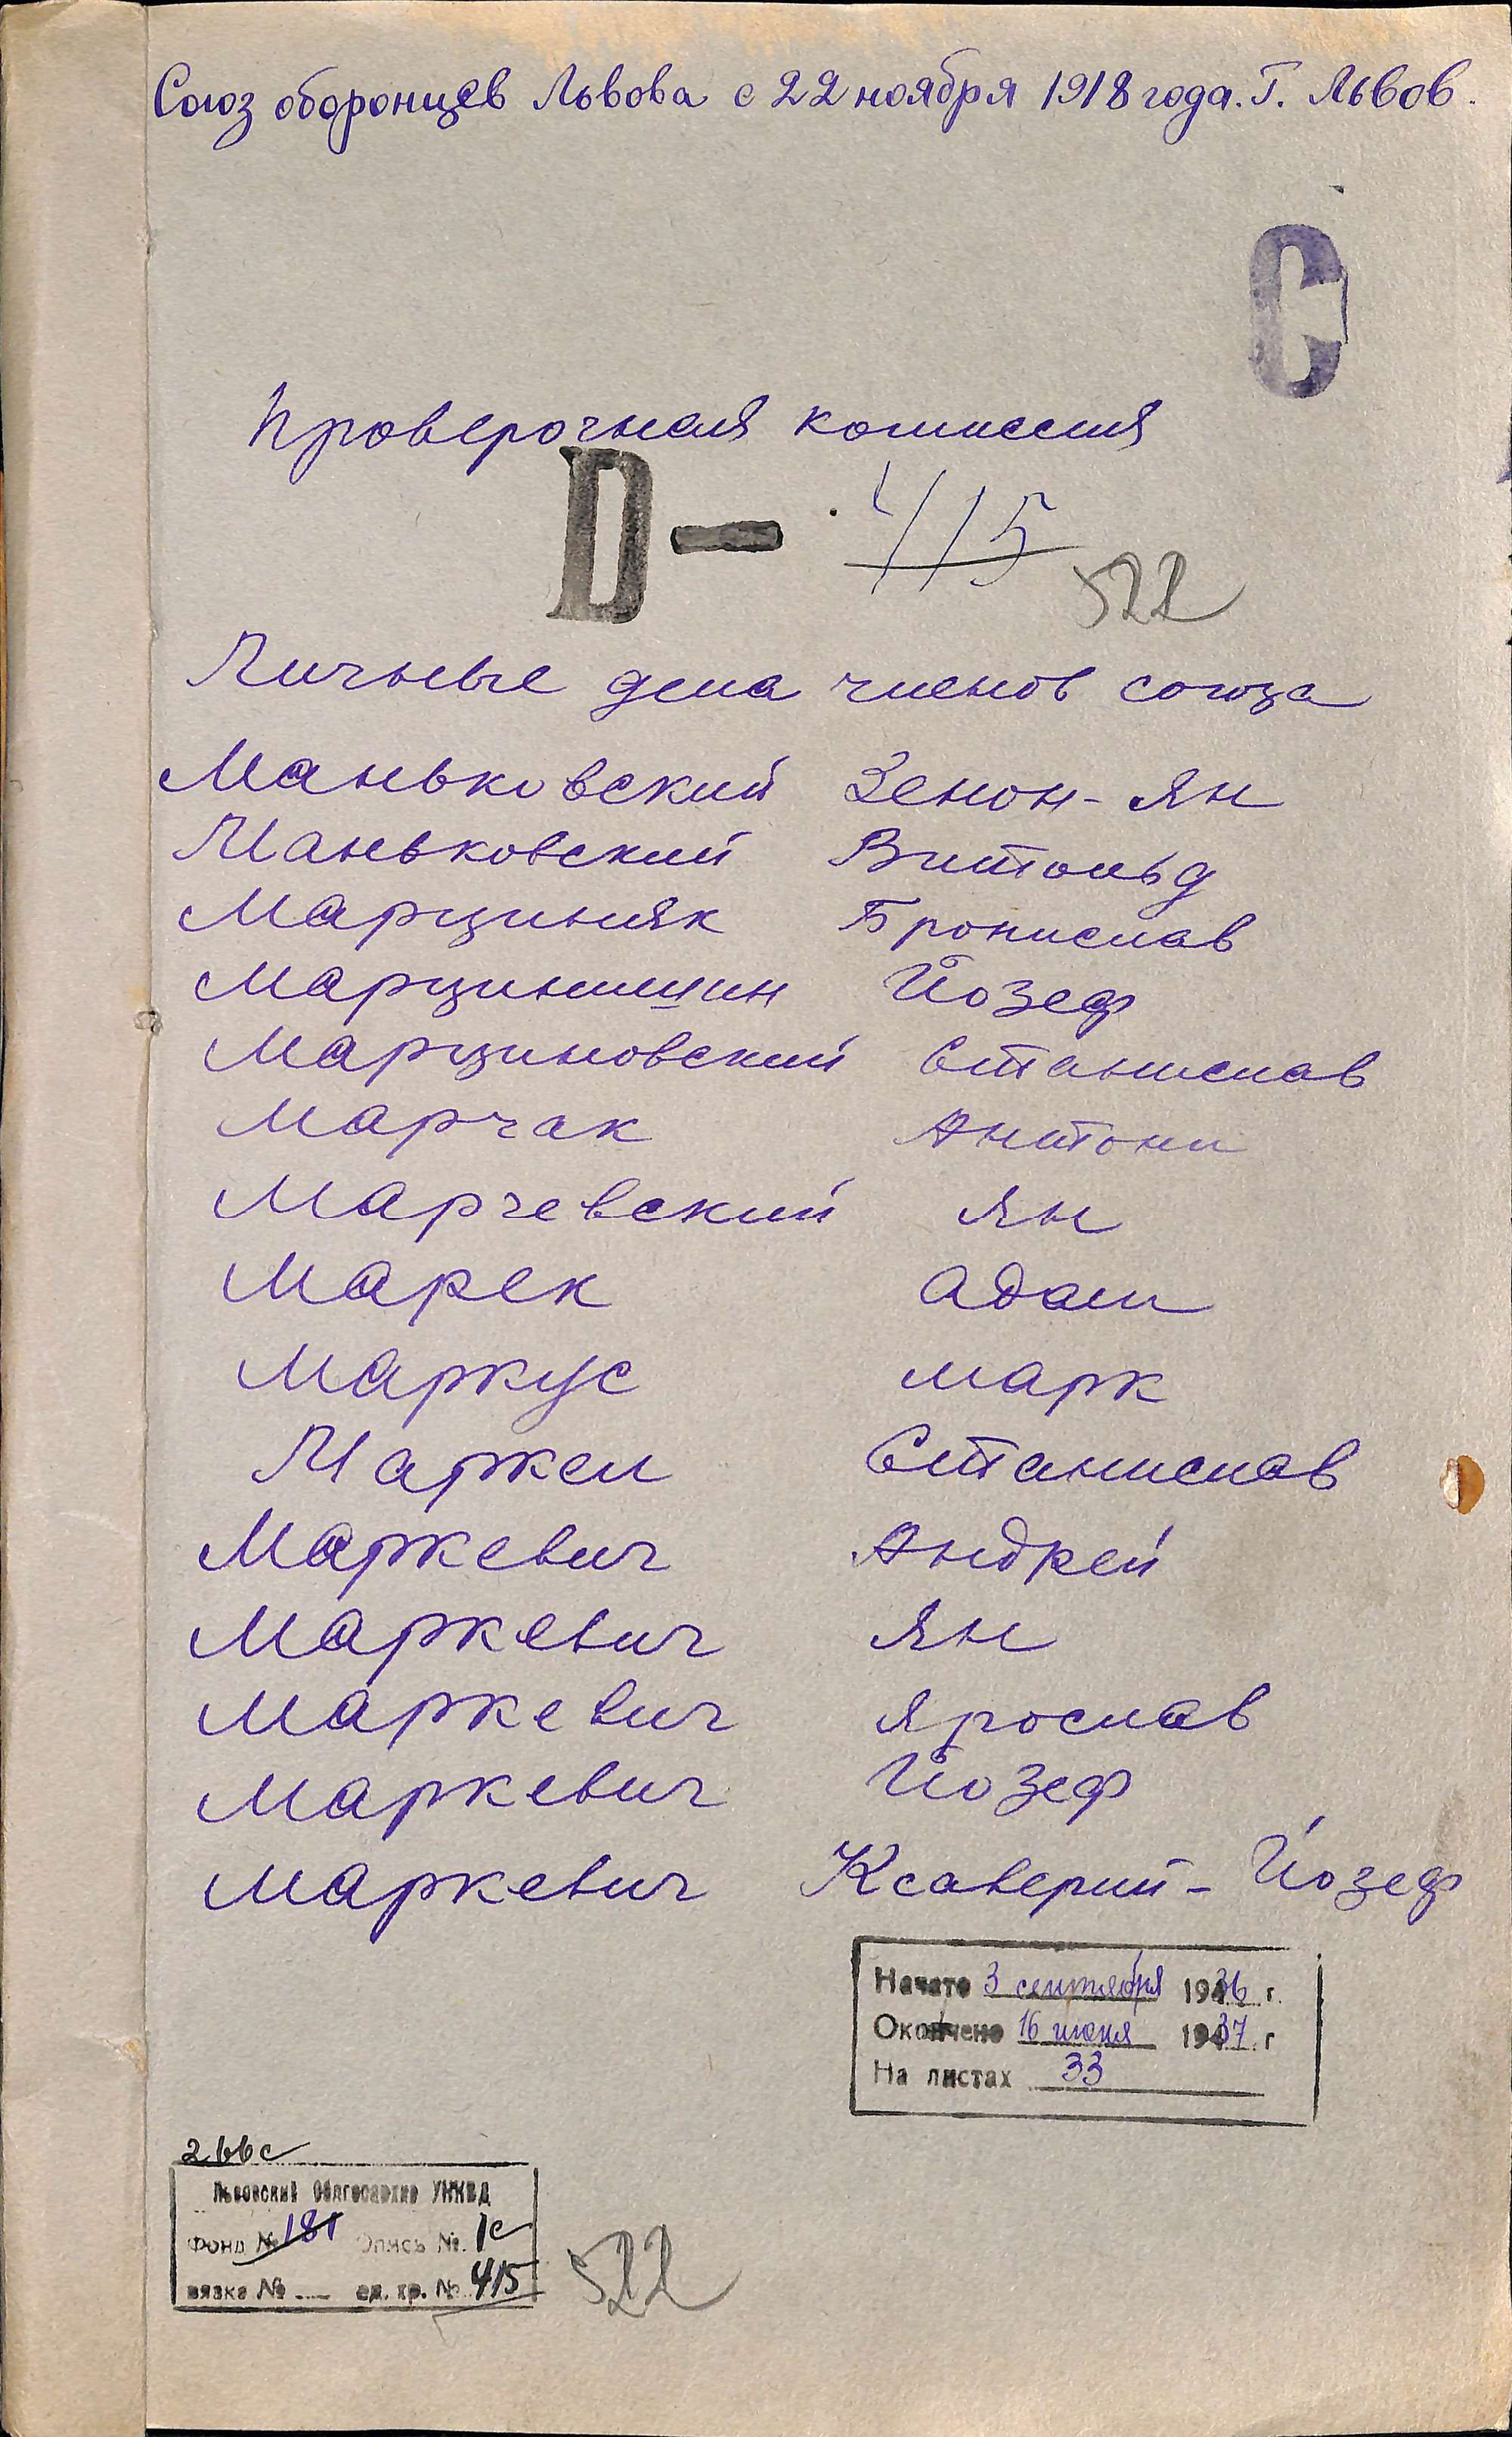 Союз оборонцев Львова с 22 ноября 1918 года. Г. Львов.
С
Проверочная комиссия
D — 415 522
Личные дела членов союза
Маньковский Зенон-Ян
Маньковский Витольд
Марциняк Бронислав
Марцинишин Йозеф
Марциновский Станислав
Марчак Антони
Марчевский Ян
Марек Адам
Маркус Марк
Маркел Станислав
Маркевич Андрей
Маркевич Ян
Маркевич Ярослав
Маркевич Йозеф
Маркевич Ксаверий-Йозеф
Начато 3 сентября 1936 г.
Окончено 16 июня 1937 г
На листах 33
266с
Львовский Облгосархив УНКВД
Фонд № 181 Опись №. 1с
вязка № — ед. хр. № 415
522